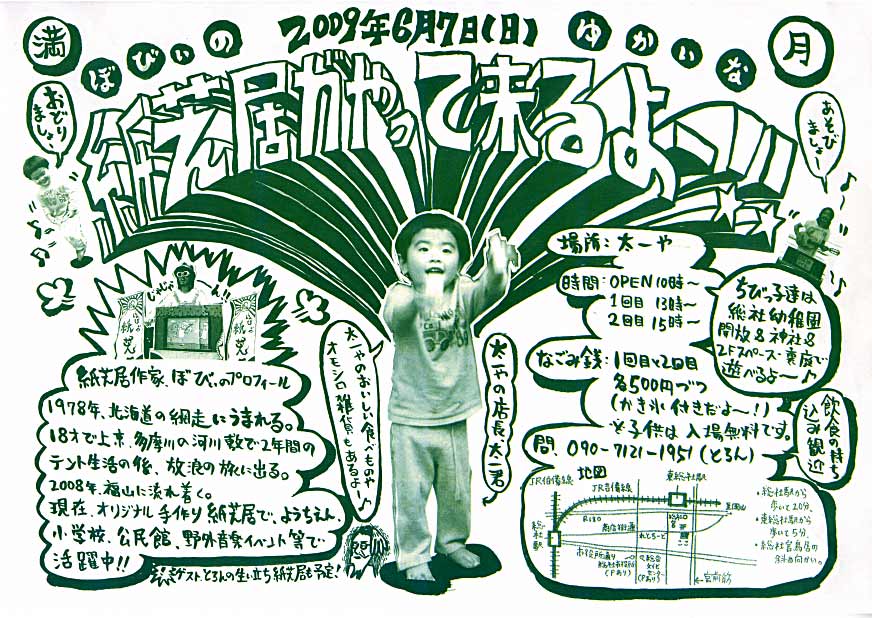 満
月
2009年6月7日(日)
ぽぴぃの
ゆかいな
紙芝居がやって来るよー!!
おどり
ましょ〜
あそび
ましょ〜
じゃじゃ
ーん!!
紙芝居作家、ぽぴぃのプロフィール
1978年、北海道の網走にうまれる。
18才で上京、多摩川の河川敷で2年間の
テント生活の後、放浪の旅に出る。
2008年、福山に流れ着く。
現在、オリジナル手作り紙芝居で、ようちえん、
小学校、公民館、野外音楽イベント等で
活躍中!!
ゲストとろんの生い立ち紙芝居も予定!
太一やのおいしい食べものや
オモシロ雑貨もあるよ〜♪
太一やの店長 太一君
場所:太一や
時間:OPEN 10時〜
1回目 13時〜
2回目 15時〜
なごみ銭:1回目と2回目
各500円づつ
(かき氷付きだよ〜!)
※子供は入場無料です。
問. 090-7121-1951 (とろん)
ちびっ子達は
総社幼稚園
開放&神社&
2Fスペース・裏庭で
遊べるよ〜♪
飲食の持ち
込み歓迎
地図
JR伯備線
JR吉備線
東総社駅
総社駅
R180
商店街通り
れとろーど
市役所通り
総社市役所
(Pあり)
総合
文化
センター
(Pあり)
←宮前筋
至岡山
・総社駅から
歩いて20分。
・東総社駅から
歩いて5分。
・総社宮鳥居の
斜め向かい。